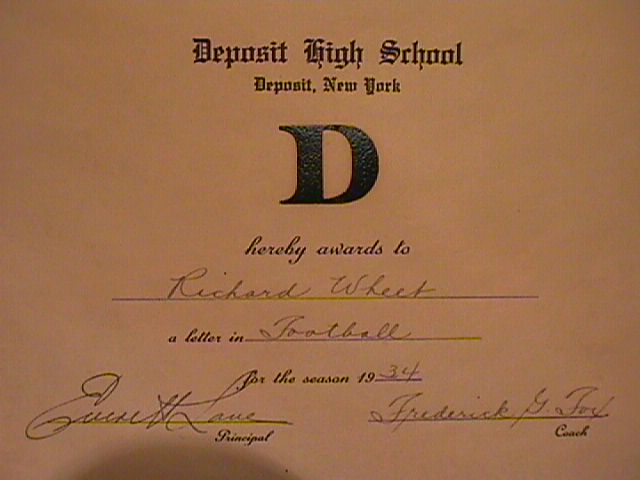 Deposit High School
Deposit, New York
D
hereby awards to
Richard Wheet
a letter in Football
for the season 1934
Everett Lane Frederick G. Fox
Principal Coach